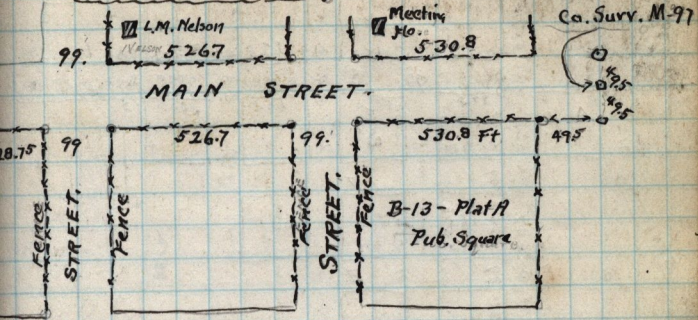 L.M. Nelson
Nelson
Meeting
Ho.
Co. Surv. M-97
99.
526.7
530.8
MAIN STREET.
49.5
49.5
28.75
99
526.7
99.
530.8 Ft
49.5
Fence
STREET.
Fence
Fence
STREET.
Fence
B-13 - Plat A
Pub. Square